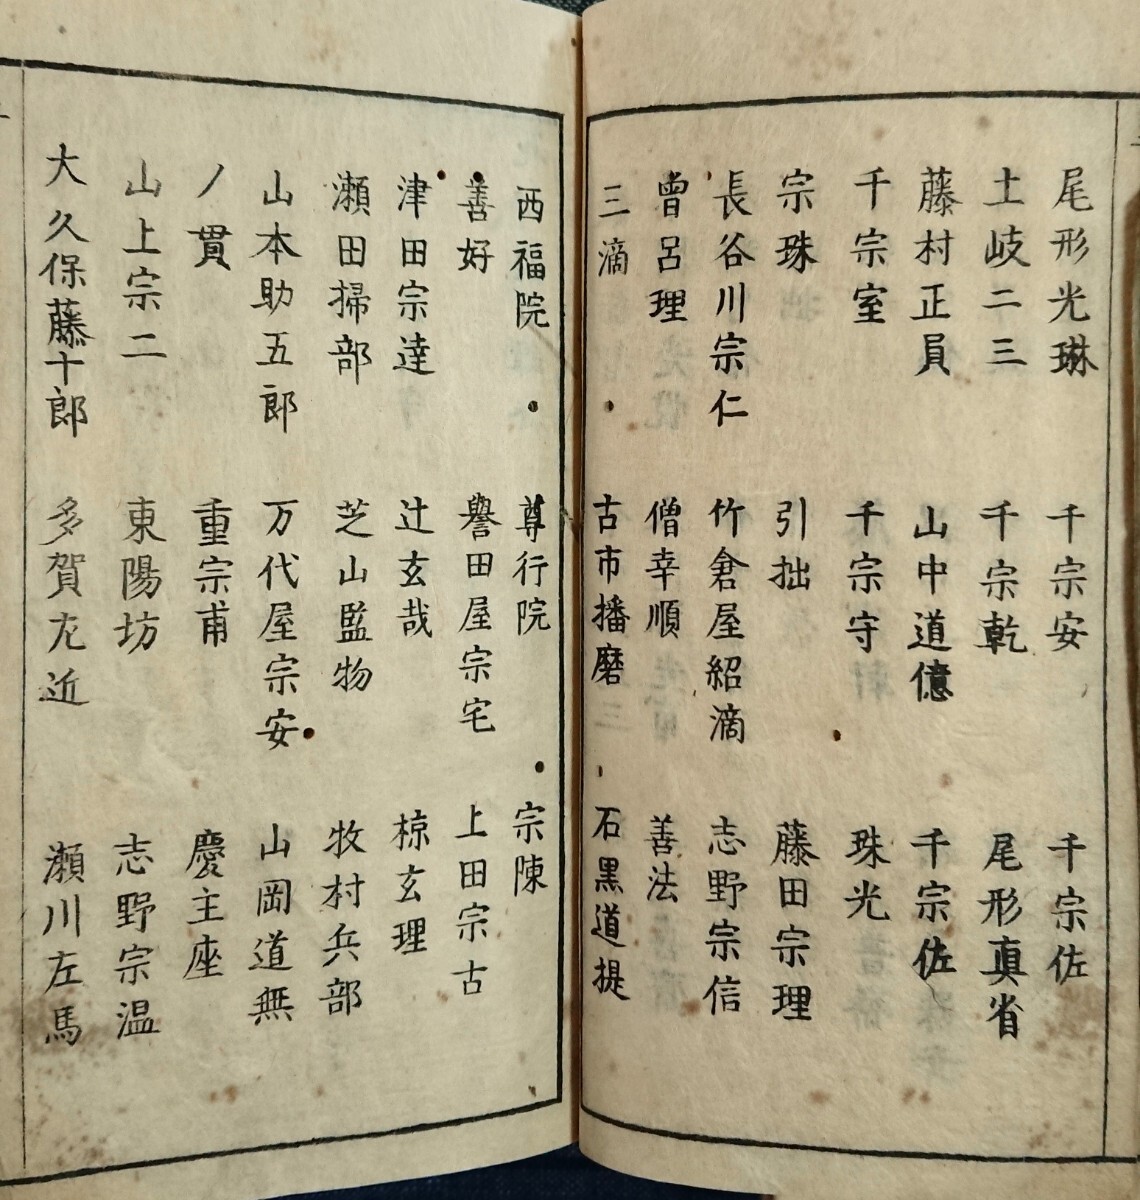 尾形光琳 千宗安 千宗佐
土岐二三 千宗乾 尾形真省
藤村正員 山中道億 千宗佐
千宗室 千宗守 珠光
宗珠 引拙 藤田宗理
長谷川宗仁 竹倉屋紹滴 志野宗信
曽呂理 僧幸順 善法
三滴 古市播磨 石黒道提
西福院 尊行院 宗陳
善好 誉田屋宗宅 上田宗古
津田宗達 辻玄哉 椋玄理
瀬田掃部 芝山監物 牧村兵部
山本助五郎 万代屋宗安 山岡道無
ノ貫 重宗甫 慶主座
山上宗二 東陽坊 志野宗温
大久保藤十郎 多賀左近 瀬川左馬